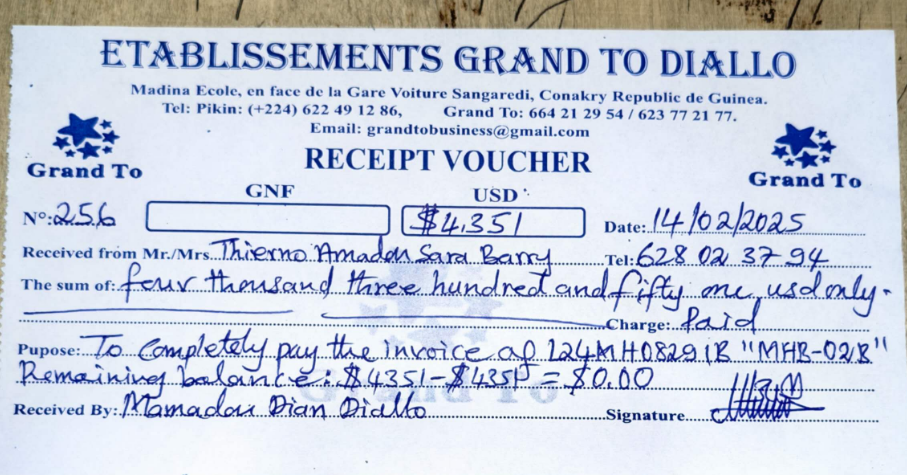 ETABLISSEMENTS GRAND TO DIALLO
Madina Ecole, en face de la Gare Voiture Sangaredi, Conakry Republic de Guinea.
Tel: Pikin: (+224) 622 49 12 86, Grand To: 664 21 29 54 / 623 77 21 77.
Email: grandtobusiness@gmail.com
Grand To
RECEIPT VOUCHER
Grand To
GNF USD
Nº: 256 $4.351 Date: 14/02/2025
Received from Mr./Mrs Thierno Amadou Sara Barry Tel: 628 02 37 94
The sum of: four thousand three hundred and fifty one usd only.
Charge: Paid
Pupose: To completely pay the invoice of L24MH0829 1B "MHB-02B"
Remaining balance: $4351-$4351 = $0.00
Received By: Mamadou Dian Diallo Signature